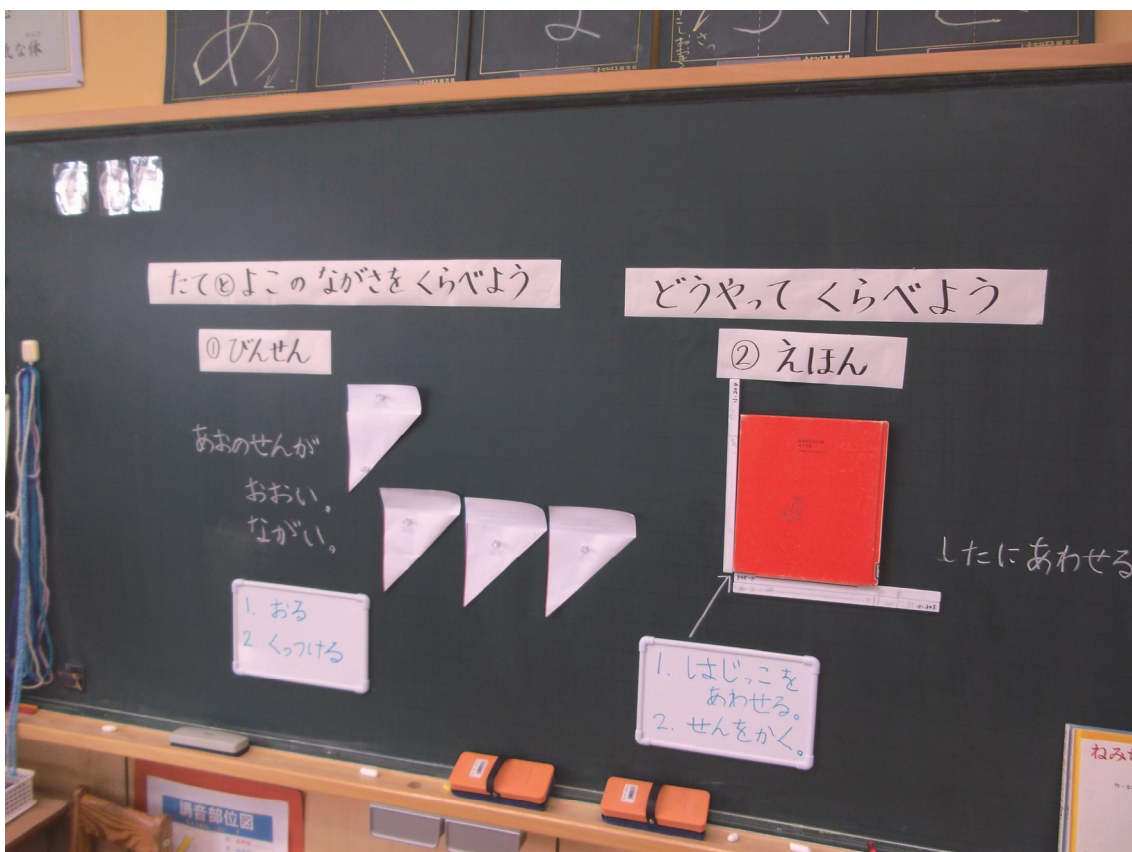 な体
あ
たてとよこのながさをくらべよう
① びんせん
あおのせんが
おおい。
ながい。
1. おる
2 くっつける
どうやってくらべよう
② えほん
したにあわせる
1. はじっこを
あわせる。
2. せんをかく。
調音部位図